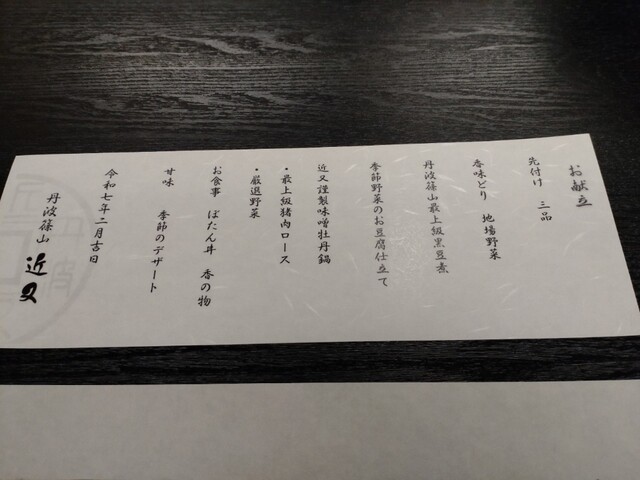 お献立
先付け 三品
香味どり 地場野菜
丹波篠山最上級黒豆素
季節野菜のお豆腐仕立て
近又謹製味噌牡丹鍋
・最上級猪肉ロース
・厳選野菜
お食事 ぼたん丼 香の物
甘味 季節のデザート
令和七年二月吉日
丹波篠山 近又